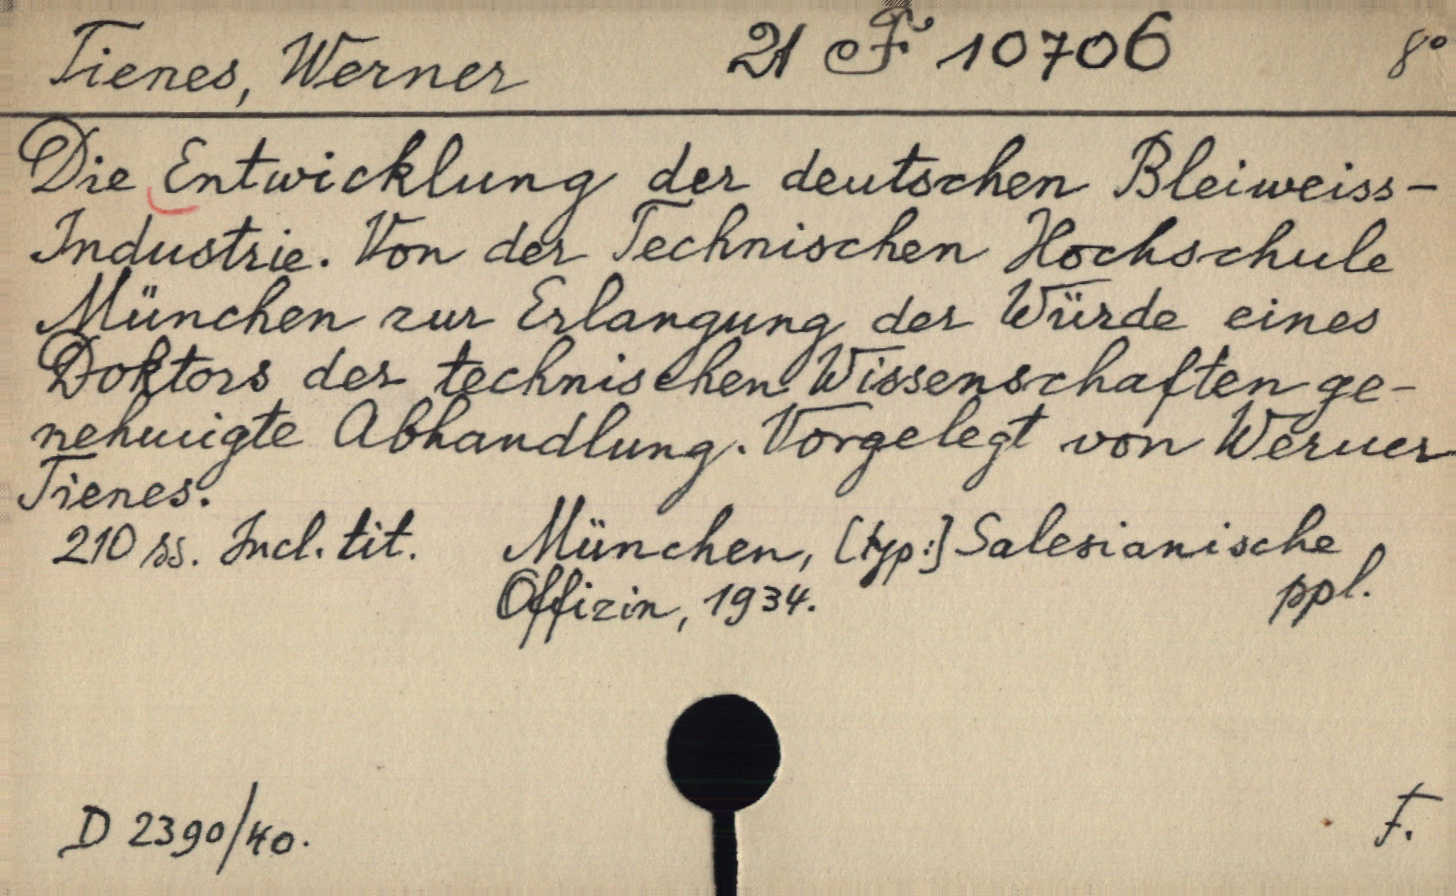 Tienes, Werner 21 F 10706 8°
Die Entwicklung der deutschen Bleiweiss-
Industrie. Von der Technischen Hochschule
München zur Erlangung der Würde eines
Doktors der technischen Wissenschaften ge-
nehmigte Abhandlung. Vorgelegt von Werner
Tienes.
210 ss. Incl. tit. München, [typ:] Salesianische
Offizin, 1934. ppl.
D 2390/40. F.